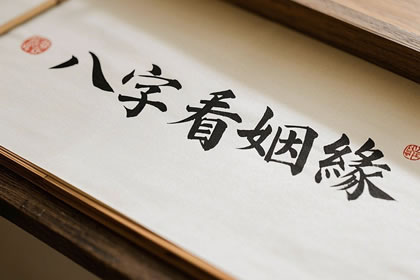 八字看姻緣